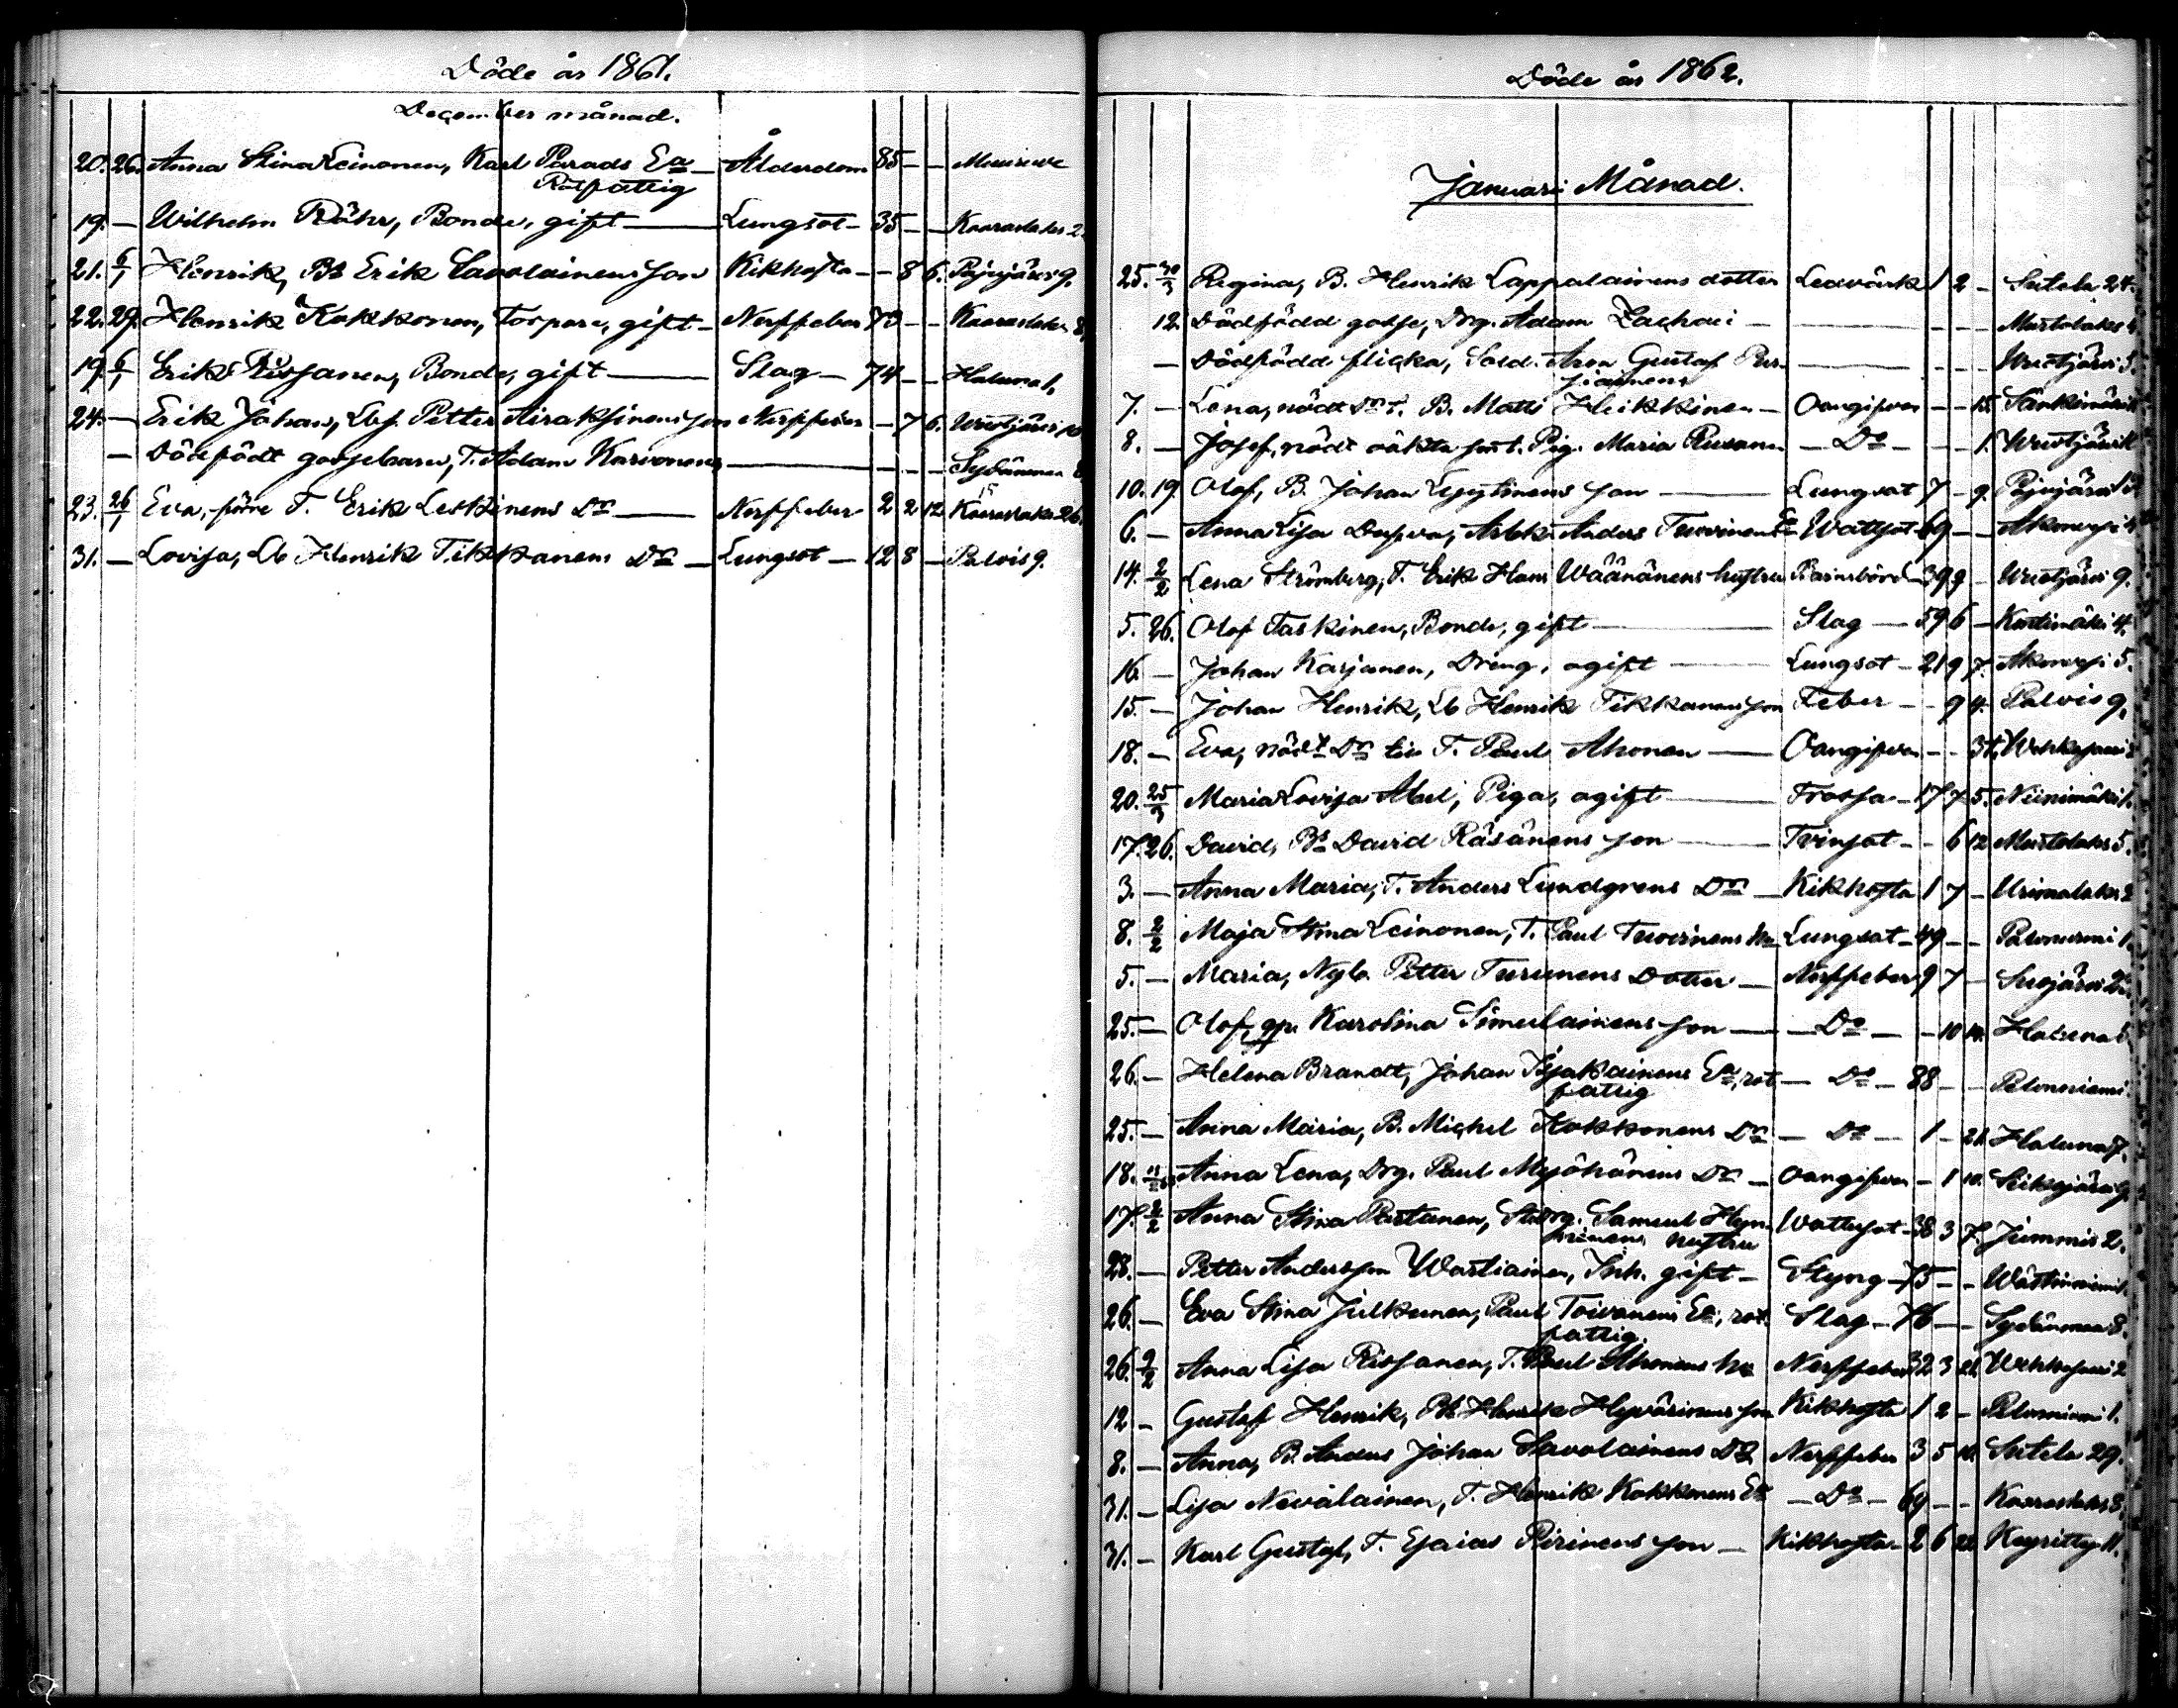 Döde år 1861.
December månad.
20. 26. Anna Stina Leinonen, Karl Parads Ea Ålderdom 85 - -
Rotfattig
19. - Wilhelm Röhr, Bonde, gift Lungsot 35 - - Kaaraslaks 2.
21. 6/1 Henrik, Bd Erik Savolainens son Kikhosta - 8 6. Pajujärvi 9.
22. 29. Henrik Kokkonen, Torpare, gift Nerffeber 73 - - Kaaraslaks 8
19. 6/1 Erik Rissanen, Bonde, gift Slag 74 - - Haluna 1.
24. - Erik Johan, Lbf. Petter Airaksinens son Nerffeber - 7 6. Wuotjärvi 10
- Dödfödt gossebarn, T. Adam Karvonens - - - Sydänmaa 8
23. 26/1 Eva, förre T. Erik Leskinens Dr Nerffeber 2 2 12. Kaaraslaks 26.
31. - Lovisa, Lb Henrik Tikkanens Dr Lungsot 12 8 - Palois 9.
Döde år 1862.
Januari Månad.
25. 30/3 Regina, B. Henrik Lappalainens dotter Ledvärk 1 2 - Sutela 24.
12. Dödfödd gosse, Drg. Adam Zachei - - - Murtolaks 4
- Dödfödd flicka, Sold. Aron Gustaf Pur- - - - Wuotjärvi 3.
siainens
7. - Lena, nödt Dr t. B. Matts Heikkinen Oangifven - - 15. Sänkimäki
8. - Josef, nödt oäkta son t. Pig. Maria Rusanen Do - - 1. Wuotjärvi
10. 19. Olof, B. Johan Lyytinens son Lungsot 7 - 9. Pajujärvi 13
6. - Anna Lisa Despva, Arbk. Anders Tuovinens Ea Wattsot 69 - - Akonvesi 4
14. 2/2 Lena Strömberg, T. Erik Hans Wäänänens hustru Barnsbörd 39 9 - Wuotjärvi 9.
5. 26. Olof Taskinen, Bonde, gift Slag 59 6 - Kortimäki 4.
16. - Johan Karjanen, Dräng, ogift Lungsot 21 9 7. Akonvesi 5.
15. - Johan Henrik, Lb Henrik Tikkanens son Feber - 9 4. Palois 9.
18. - Eva, nödt Dr till T. Paul Ahonen Oangifven - - 3t.
20. 25/3 Maria Lovisa Abel, Piga, ogift Trossa 17 7 5. Niinimäki 1.
17. 26. David, Bd David Räsänens son Tvinsot - 6 12 Murtolaks 5.
3. - Anna Maria, T. Anders Lundgrens Dr Kikhosta 1 7 - Urimolaks 2
8. 2/2 Maja Stina Leinonen, T. Paul Tuovinens hu Lungsot 49 - - Palonurmi 1.
5. - Maria, Nyb. Petter Turunens Dotter Nerffeber 9 7 - Suojärvi 2
25. - Olof, qps Karolina Simulainens son Do - 10 14. Haluna 5
26. - Helena Brandt, Johan Pyjakainens Ea, rot Do 88 - - Pelonniemi
fattig
25. - Anna Maria, B. Michel Kokkonens Dr Do 1 - 21. Haluna 7.
18. Anna Lena, Drg. Paul Myöhänens Dr Oangifven - 1 10. Siikajärvi 9.
17. 2/2 Anna Stina Partanen, Stdrg. Samuel Hyn- Wattusot 38 3 7. Jummis 2.
ninens hustru
28. - Petter Andersson Wartiainen, Inh. gift Styng 75 - - Wästinniemi
26. - Eva Stina Julkunen, Paul Toivanens Ea, rot Slag 76 - - Sydänmaa 8.
fattig.
26. 9/2 Anna Lisa Rissanen, T. Paul Ahonens hu Nerffeber 32 3 21
12 - Gustaf Henrik, Bd Henrik Hyvärinens son Kikhosta 1 2 - Pelonniemi 1.
8. - Anna, B. Anders Johan Savolainens Dr Nerffeber 3 5 10. Sutela 29.
31. - Lisa Nevalainen, T. Henrik Kokkonens Ea Do 69 - - Kaaraslaks 8.
31. - Karl Gustaf, T. Esaias Pirinens son Kikhosta 2 6 22. Keyritty 11.